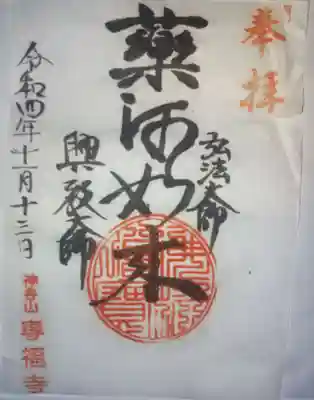 奉拝
弘法大師
薬師如来
興教大師
令和四年十一月十三日
神身山
専福寺